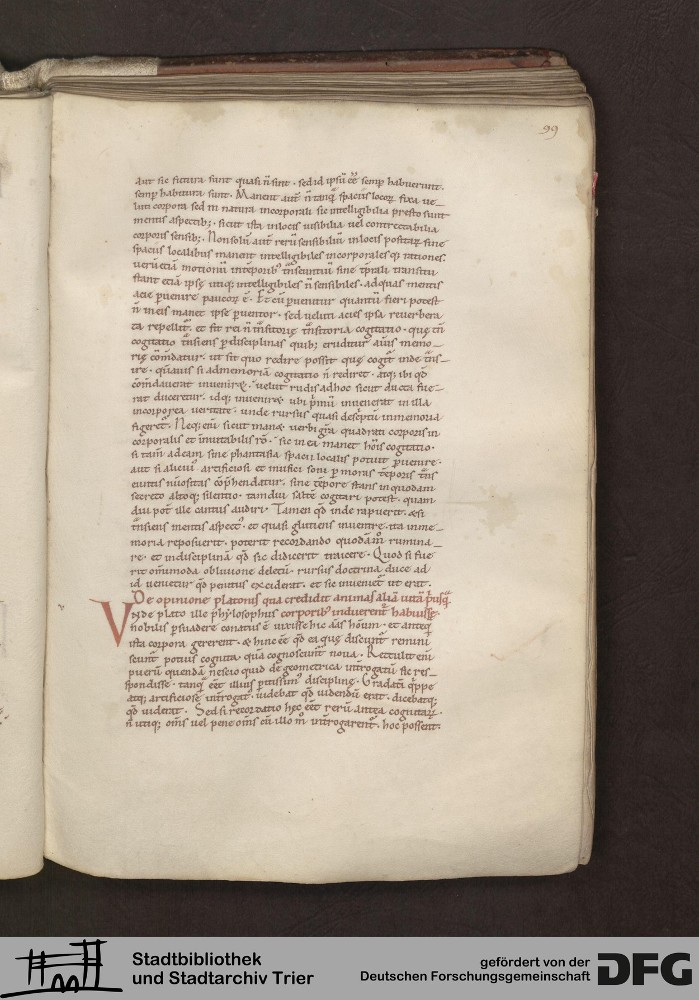 99
aut sic futura sunt quasi n̄ sint · sed id ipsū eē̄ semp habuerunt ·
semp habitura sunt · Manent aut̄ n̄ tanq̄ spaciis locoꝝ fixa ue-
luti corpora sed in natura incorporali sic intelligibilia presto sunt
mentis aspectib; · sicut ista in locis uisibilia uel contrectabilia
corporis sensib; · Non solū aut̄ rerū sensibiliū in locis positaꝝ sine
spaciis localibus manent intelligibiles incorporales q; rationes ·
uerū etiā motionū intēporib᷒ t̄nseuntiū sine tp̄rali transitu
stant etiā ipsę utiq; intelligibiles n̄ sensibiles · ad quas mentis
acie puenire paucoꝝ ē · Et cū peruenitur quantū fieri potest
n̄ in eis manet ipse puentor · sed ueluti acies ipsa reuerbera
ta repellit̄ · et fit rei n̄ t̄nsitorię t̄nsitoria cogitatio · quę tn̄
cogitatio t̄nsiens p disciplinas quib; eruditur anim᷒ memo-
rię cōmdatur · ut sit quo redire possit quę cogit̄ inde t̄ns-
ire · quāuis si ad memoriā cogitatio n̄ rediret · atq; ibi qđ
cōmdauerat inueniret · uelut rudis ad hoc sicut ducta fue-
rat duceretur · idq; inueniret ubi p̄mū inuenerat in illa
incorporea ueritate · unde rursus quasi descptū in memoria
figeret̄ · Neq; enī sicut manet uerbi gr̄a quadrati corporis in
corporalis et inmutabilis rō · sic in ea manet hōis cogitatio ·
si tam̄ ad eam sine phantasia spacii localis potuit puenire ·
aut si alicui᷒ artificiosi et musici soni p moras tēporis t̄ns
euntis nūositas cōphendatur · sine tēpore stans in quodam
secreto altoq; silentio · tamdiu saltē cogitari potest · quam
diu pot̄ ille cantus audiri · Tamen qđ inde rapuerit · & si
t̄nsiens mentis aspect᷒ · et quasi glutiens in uentre · ita in me-
moria reposuerit · poterit recordando quodāmō rumina-
re · et in disciplinā qđ sic didicerit traicere · Quod si fue
rit omīmoda obliuione deletū · rursus doctrina duce ad
id uenietur qđ penitus exciderat · et sic inueniet̄ ut erat ·
De opinione platonis qua credidit animas aliā uitā p̄usq̄
Vnde plato ille phylosophus corporib᷒ induerent̄ habuisse ·
nobilis psuadere conatus ē uixisse hic aīas hoīum · et anteq̄
ista corpora gererent · & hinc eē qđ ea quę discunt̄ remini
scunt̄ potius cognita · quā cognoscunt̄ noua · Rettulit enī
puerū quendā nescio quid de geometrica int̄rogatū sic res-
pondisse · tanq̄ eēt illius pitissim᷒ disciplinę · Gradatī q̄ppe
atq; artificiose int̄rogat᷒ · uidebat qđ uidendū erat · dicebatq;
qđ uiderat · Sed si recordatio hęc eēt rerū antea cognitaꝝ ·
n̄ utiq; om̄s uel pene om̄s cū illo m̄ int̄rogarent̄ · hoc possent ·
Stadtbibliothek
und Stadtarchiv Trier
gefördert von der
Deutschen Forschungsgemeinschaft
DFG